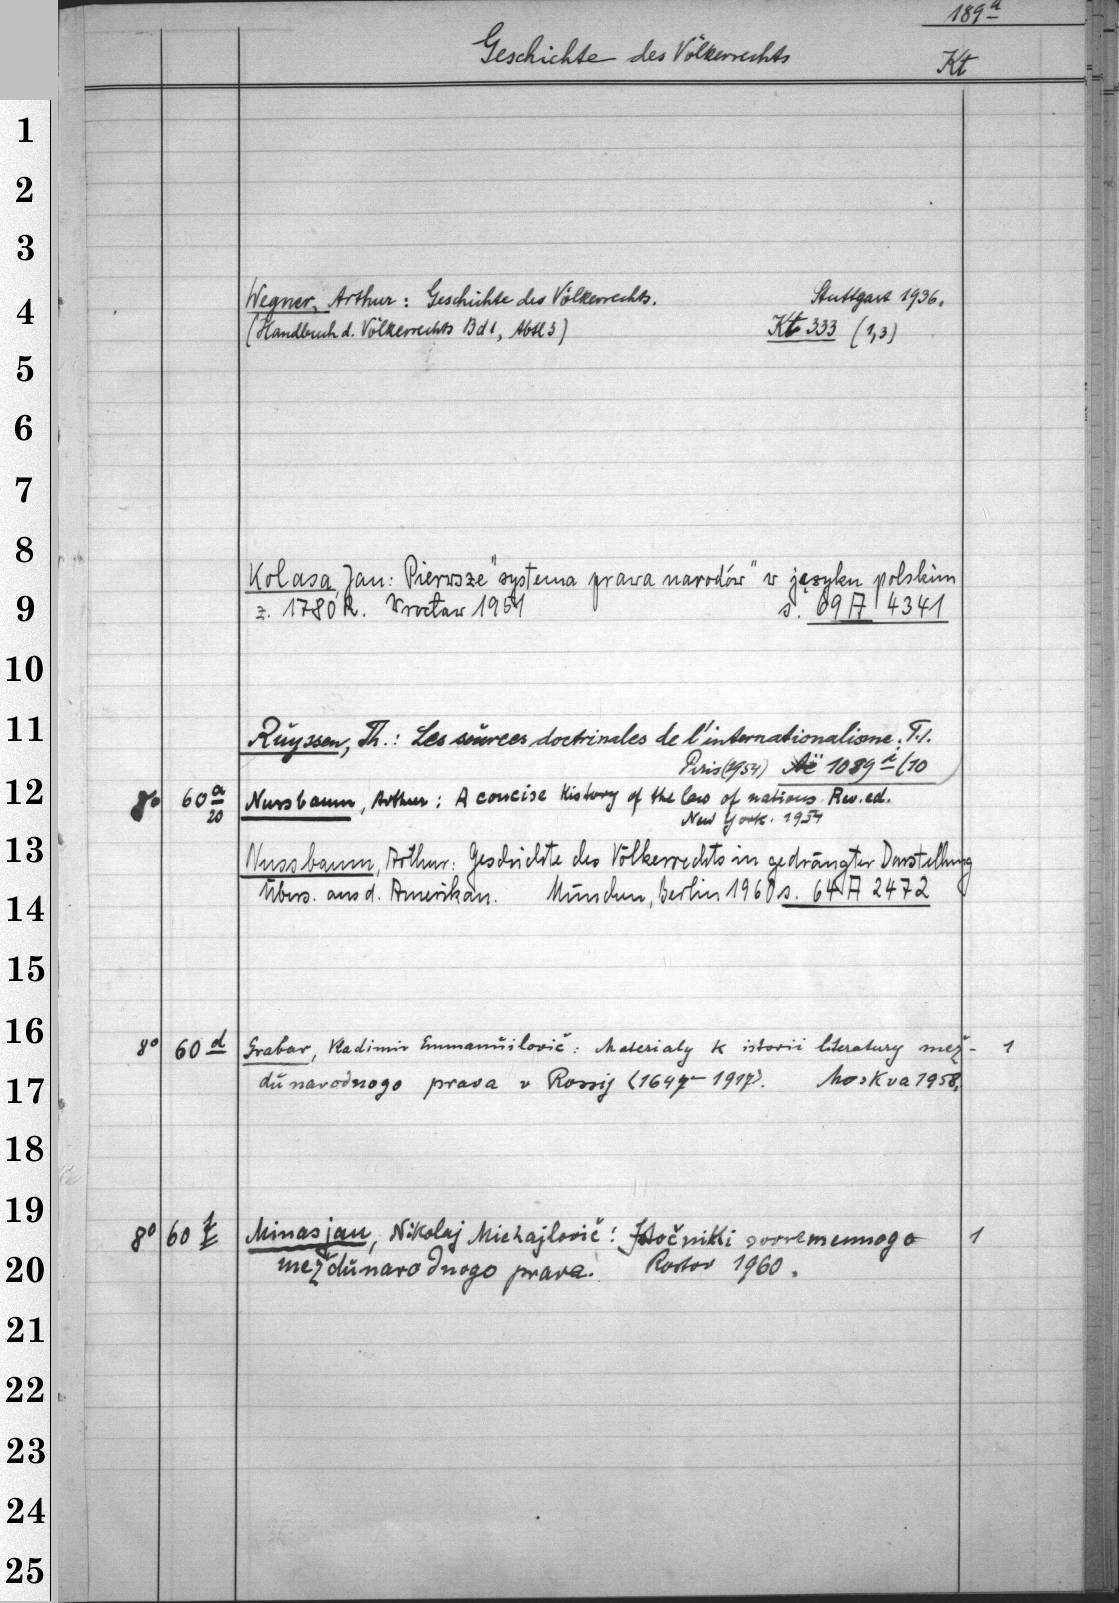 189a
Geschichte des Völkerrechts
Kt
1
2
3
Wegner, Arthur: Geschichte des Völkerrechts. Stuttgart 1936.
4
(Handbuch d. Völkerrechts Bd 1, Abtl 3) Kt 333 (1,3)
5
6
7
8
Kolasa, Jan: Pierwsze "systema prawa narodów" w języku polskim
9
z. 1780 R. Wrocław 1951 s. 69 A 4341
10
11
Ruyssen, Th.: Les sources doctrinales de l'internationalisme. T.1.
Paris (1954) 1089 /10
12
8° 60 a/20 Nussbaum, Arthur: A concise history of the law of nations. Rev. ed.
New York. 1954
13
Nussbaum, Arthur: Geschichte des Völkerrechts in gedrängter Darstellung
Übers. aus d. Amerikan. München, Berlin 1960 s. 64 A 2472
14
15
16
8° 60 d Grabar, Vladimir Emmanuilovič: Materialy k istorii literatury mež- 1
17
dunarodnogo prava v Rossij (1647-1917). Moskva 1958.
18
19
8° 60 f Minasjan, Nikolaj Michajlovič: Istočniki sovremennogo 1
20
meždunarodnogo prava. Rostov 1960.
21
22
23
24
25